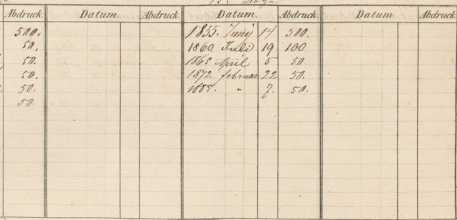 Abdruck Datum. Abdruck Datum. Abdruck Datum. Abdruck
500. 1855. Juny 14 300.
50. 1860 Juli 19 100
50. 1865 April 5 50
50. 1872 februar 22 50.
50. 1885. " 7. 50.
50